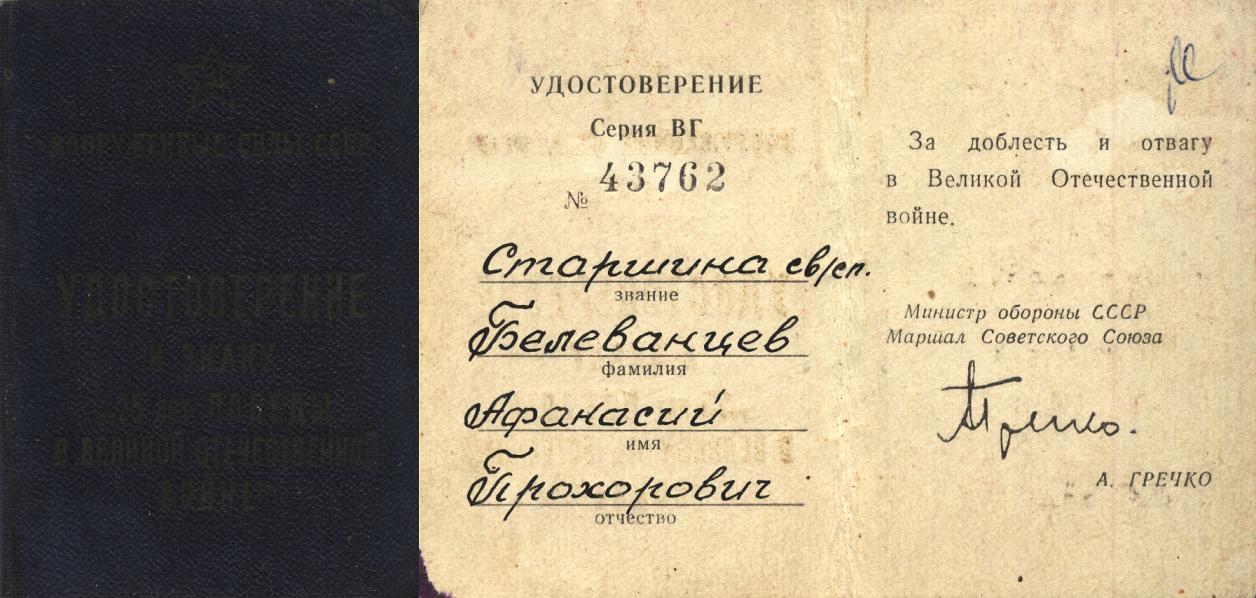 ВООРУЖЕННЫЕ СИЛЫ СССР
УДОСТОВЕРЕНИЕ
К ЗНАКУ
„25 лет ПОБЕДЫ
В ВЕЛИКОЙ ОТЕЧЕСТВЕННОЙ
ВОЙНЕ"
УДОСТОВЕРЕНИЕ
Серия ВГ
№ 43762
Старшина св/сп.
звание
Белеванцев
фамилия
Афанасий
имя
Прохорович
отчество
За доблесть и отвагу
в Великой Отечественной
войне.
Министр обороны СССР
Маршал Советского Союза
Гречко.
А. ГРЕЧКО